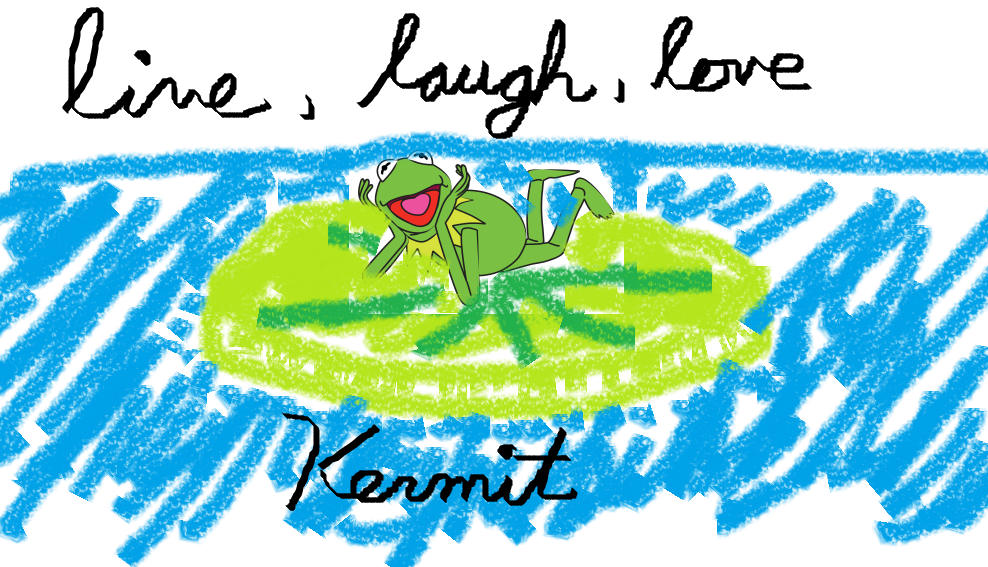 live, laugh, love
Kermit